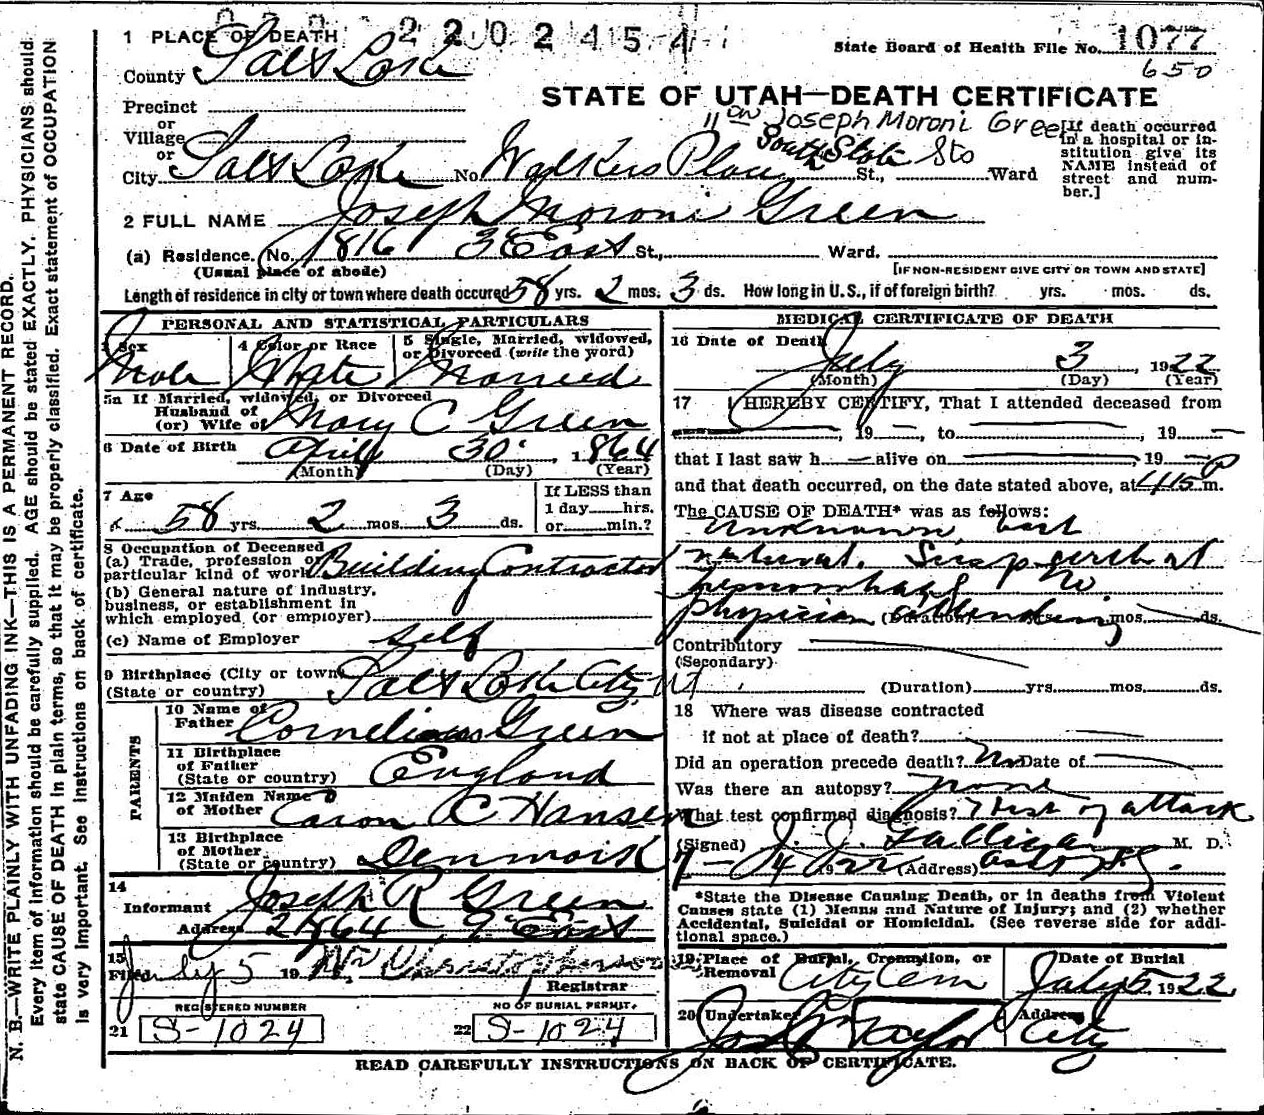 1 PLACE OF DEATH 2202454
State Board of Health File No. 1077
650
County Salt Lake
STATE OF UTAH—DEATH CERTIFICATE
Precinct
or
Village
or
City Salt Lake No. Walkers Place South State Sts St., Ward
on Joseph Moroni Green
[If death occurred in a hospital or institution give its NAME instead of street and number.]
2 FULL NAME Joseph Moroni Green
(a) Residence. (No. 1816 3 East St., Ward.
(Usual place of abode) [IF NON-RESIDENT GIVE CITY OR TOWN AND STATE]
Length of residence in city or town where death occured 58 yrs. 2 mos. 3 ds. How long in U.S., if of foreign birth? yrs. mos. ds.
PERSONAL AND STATISTICAL PARTICULARS
3 Sex 4 Color or Race 5 Single, Married, widowed, or Divorced (write the word)
Male White Married
5a If Married, widowed, or Divorced
Husband of
(or) Wife of Mary C Green
6 Date of Birth April 30 1864
(Month) (Day) (Year)
7 Age 58 yrs. 2 mos. 3 ds.
If LESS than
1 day hrs.
or min.?
8 Occupation of Deceased
(a) Trade, profession or
particular kind of work Building Contractor
(b) General nature of industry,
business, or establishment in
which employed (or employer)
(c) Name of Employer self
9 Birthplace (City or town) Salt Lake City, Ut
(State or country)
PARENTS
10 Name of
Father Cornelius Green
11 Birthplace
of Father England
(State or country)
12 Maiden Name
of Mother Caron C Hansen
13 Birthplace
of Mother Denmark
(State or country)
14
Informant Joseph R Green
Address 2864, 9 East
15
Filed July 5 19
Registrar
REGISTERED NUMBER NO OF BURIAL PERMIT.
21 S-1024 22 S-1024
MEDICAL CERTIFICATE OF DEATH
16 Date of Death July 3, 1922
(Month) (Day) (Year)
17 I HEREBY CERTIFY, That I attended deceased from
, 19 , to , 19
that I last saw h alive on , 19
and that death occurred, on the date stated above, at 4:15 P m.
The CAUSE OF DEATH* was as follows:
Unknown, but
natural.
hemorrhage No
physician attending
(Duration) yrs. mos. ds.
Contributory
(Secondary)
(Duration) yrs. mos. ds.
18 Where was disease contracted
if not at place of death?
Did an operation precede death? No Date of
Was there an autopsy? none
What test confirmed diagnosis? Hist of attack
(Signed) J. J. Galligan M. D.
7 - 4 1922 (Address)
*State the Disease Causing Death, or in deaths from Violent
Causes state (1) Means and Nature of Injury; and (2) whether
Accidental, Suicidal or Homicidal. (See reverse side for addi-
tional space.)
19 Place of Burial, Cremation, or Removal City Cem
Date of Burial
July 5, 1922
20 Undertaker Jos Wm Taylor
Address City
READ CAREFULLY INSTRUCTIONS ON BACK OF CERTIFICATE.
N. B.—WRITE PLAINLY WITH UNFADING INK—THIS IS A PERMANENT RECORD.
Every item of information should be carefully supplied. AGE should be stated EXACTLY. PHYSICIANS should
state CAUSE OF DEATH in plain terms, so that it may be properly classified. Exact statement of OCCUPATION
is very important. See instructions on back of certificate.